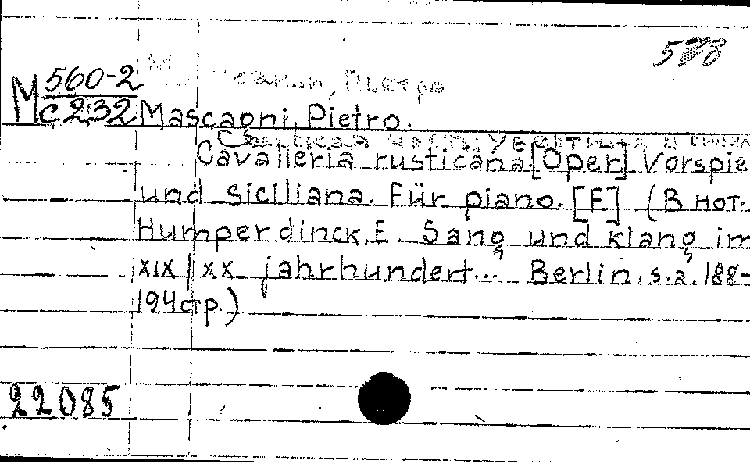 578
M 560-2
C 232
Mascagni, Pietro.
Cavalleria rusticana [Oper] Vorspie
und siciliana. Für piano. [F] (В нот.
Humperdinck, E. Sang und klang im
XIX/XX jahrhundert... Berlin, s.a. 188-
194стр.)
22085